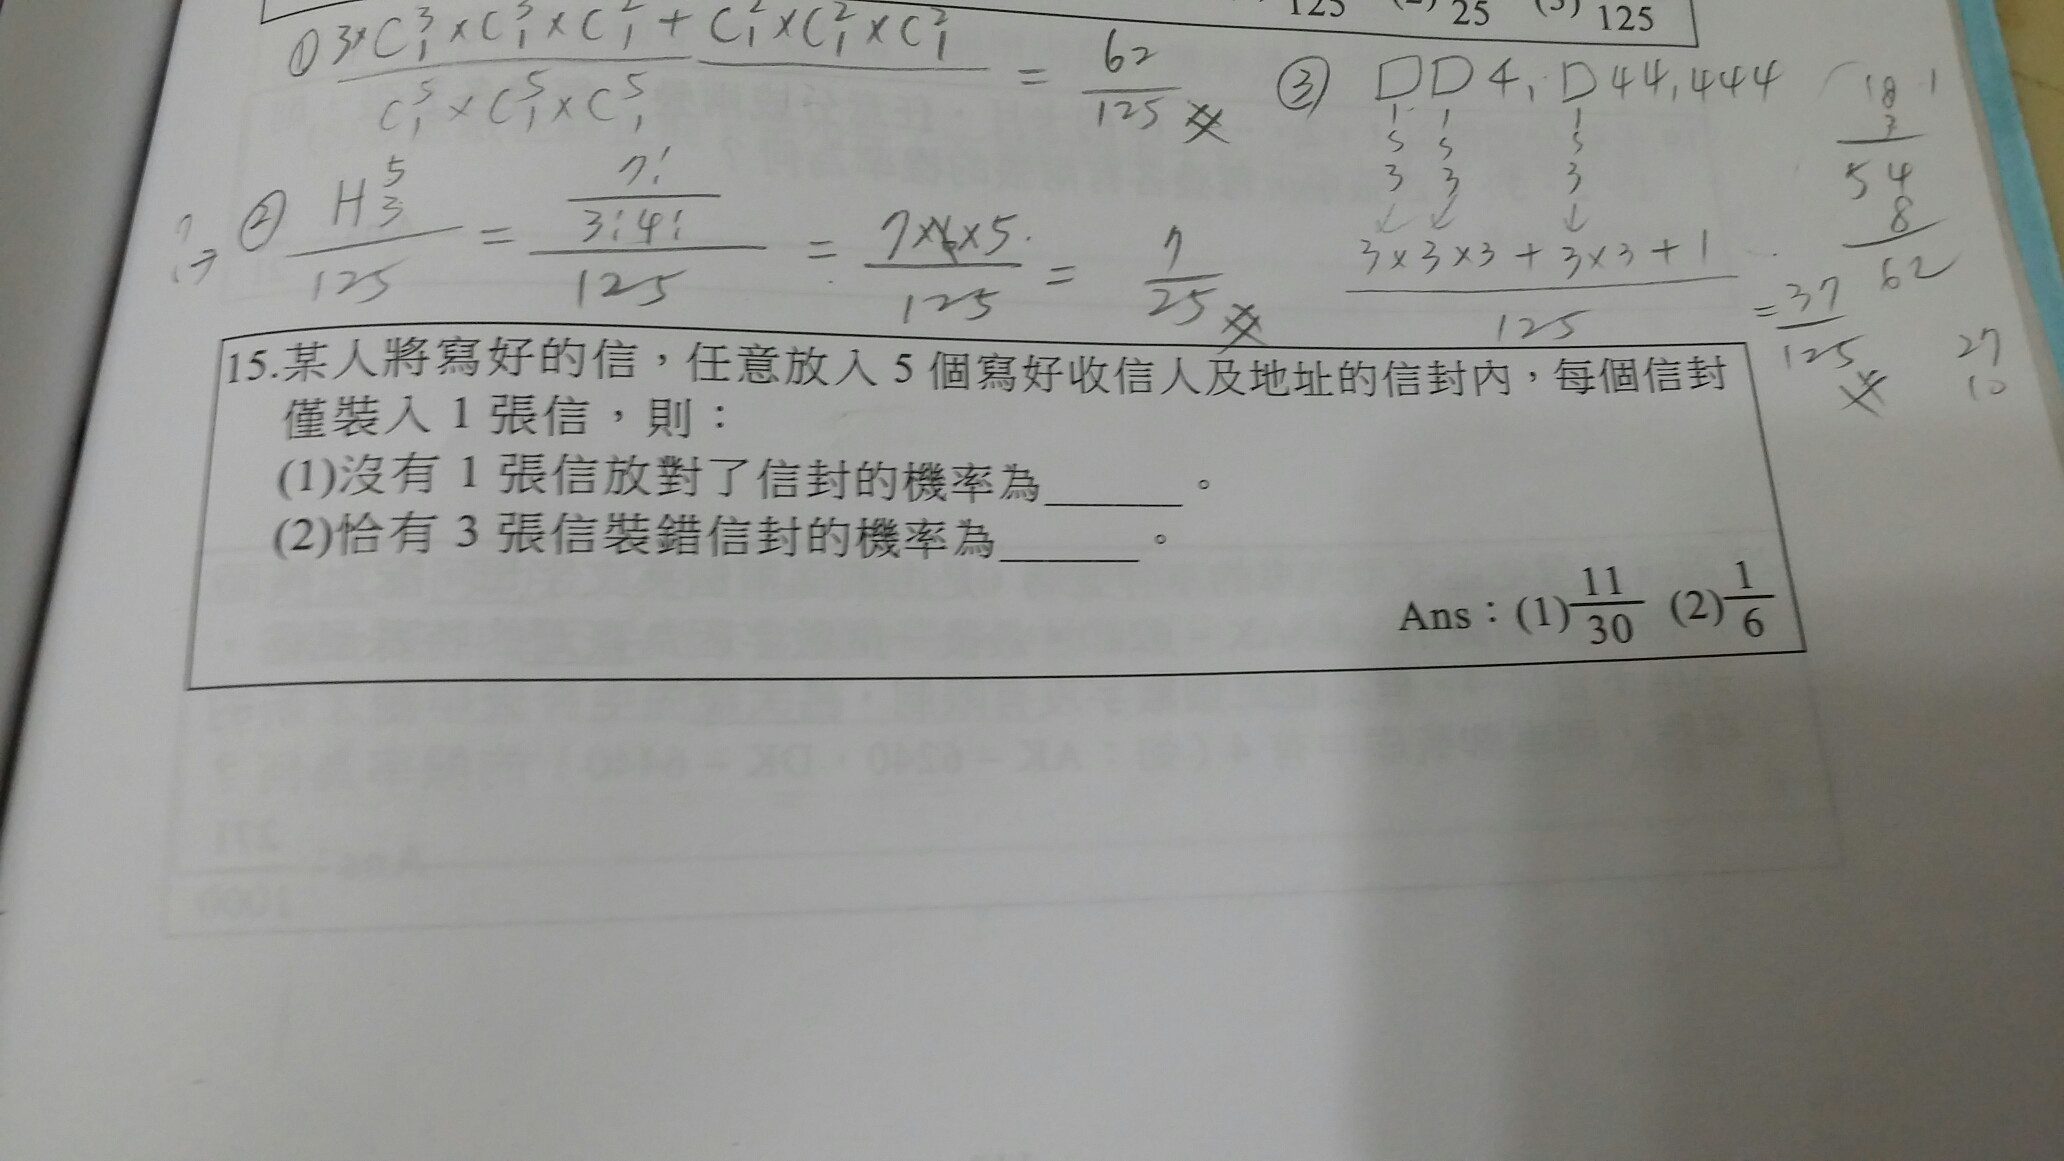 125 (2) 25 (3) 125
① 3×C³₁×C³₁×C²₁+C²₁×C²₁×C²₁ / C⁵₁×C⁵₁×C⁵₁ = 62/125
② H⁵₃/125 = 7!/3!4! / 125 = 7×6×5 / 125 = 7/25
③ □□4, □44, 444
5 5 5
3 3 3
3×3×3+3×3+1 / 125 = 37/125
18
3
54
8
62
27
10
15.某人將寫好的信,任意放入 5 個寫好收信人及地址的信封內,每個信封
僅裝入 1 張信,則:
(1)沒有 1 張信放對了信封的機率為______。
(2)恰有 3 張信裝錯信封的機率為______。
Ans:(1)11/30 (2)1/6